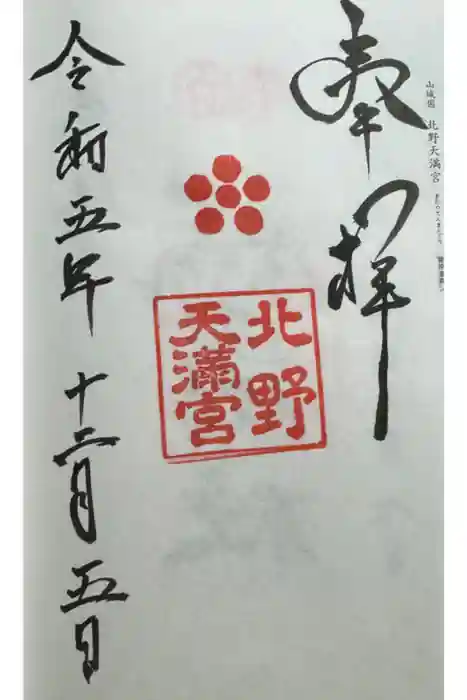 山城國 北野天満宮
奉拝
北野
天満宮
令和五年 十二月 五日